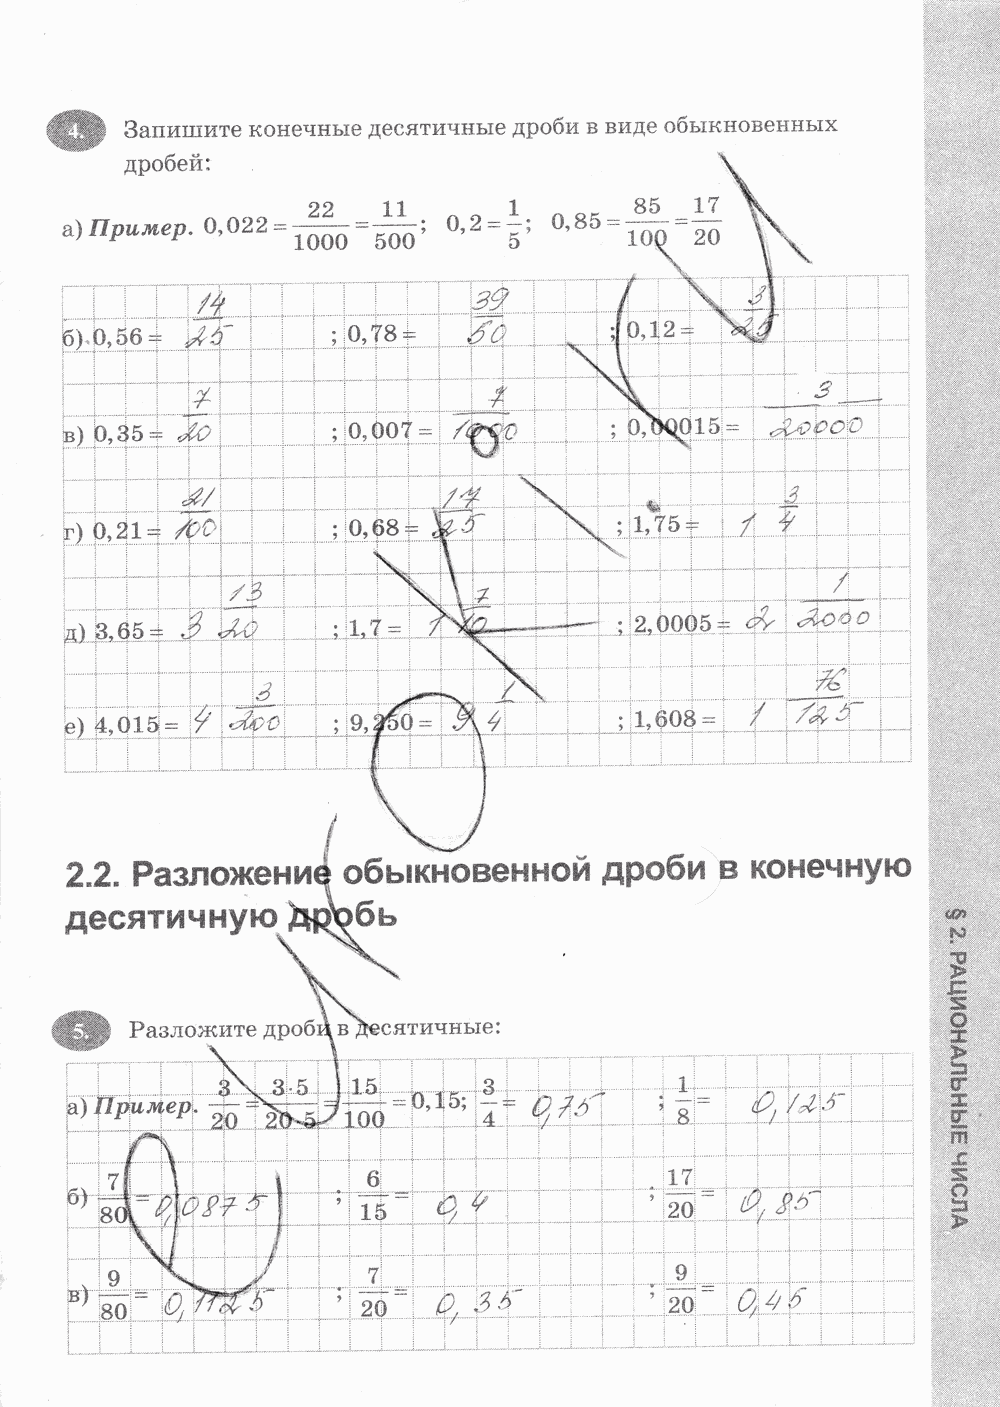 4. Запишите конечные десятичные дроби в виде обыкновенных
дробей:
а) Пример. 0,022 = 22/1000 = 11/500; 0,2 = 1/5; 0,85 = 85/100 = 17/20
б) 0,56 = 14/25 ; 0,78 = 39/50 ; 0,12 = 3/25
в) 0,35 = 7/20 ; 0,007 = 7/1000 ; 0,00015 = 3/20000
г) 0,21 = 21/100 ; 0,68 = 17/25 ; 1,75 = 1 3/4
д) 3,65 = 3 13/20 ; 1,7 = 1 7/10 ; 2,0005 = 2 1/2000
е) 4,015 = 4 3/200 ; 9,250 = 9 1/4 ; 1,608 = 1 76/125
2.2. Разложение обыкновенной дроби в конечную
десятичную дробь
5. Разложите дроби в десятичные:
а) Пример. 3/20 = 3·5/20·5 = 15/100 = 0,15; 3/4 = 0,75 ; 1/8 = 0,125
б) 7/80 = 0,0875 ; 6/15 = 0,4 ; 17/20 = 0,85
в) 9/80 = 0,1125 ; 7/20 = 0,35 ; 9/20 = 0,45
§ 2. РАЦИОНАЛЬНЫЕ ЧИСЛА